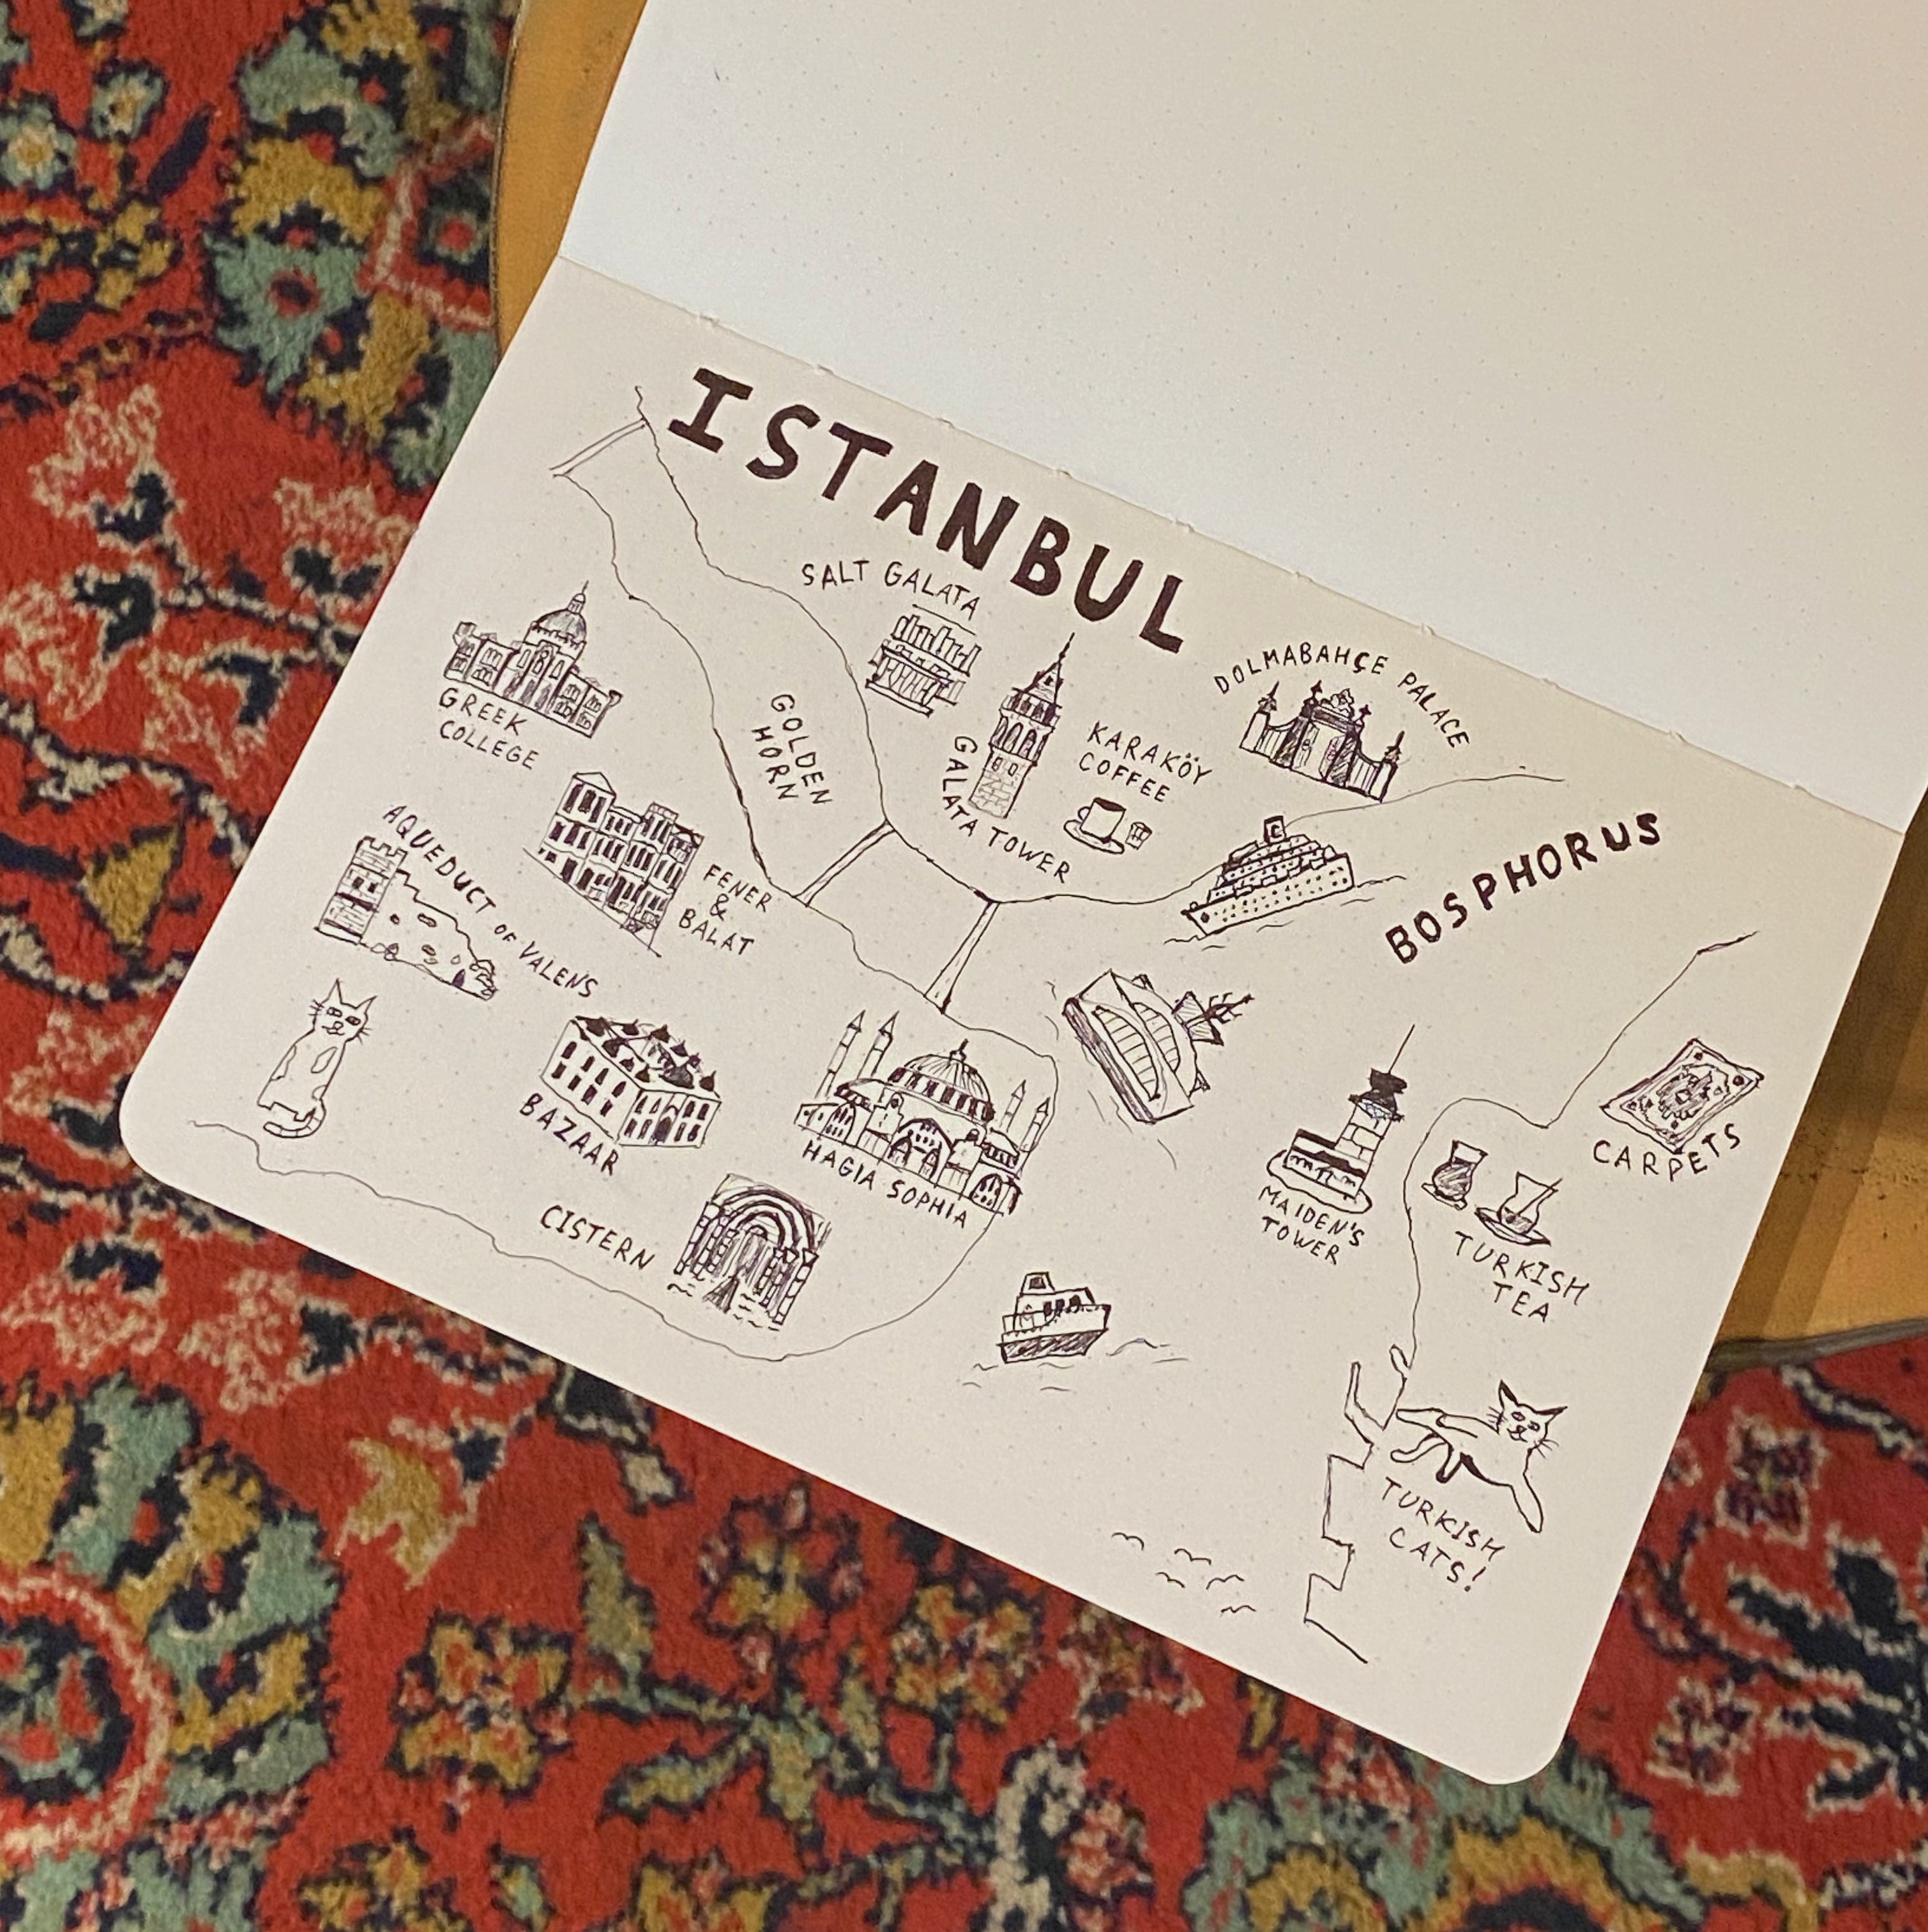 ISTANBUL
SALT GALATA
DOLMABAHÇE PALACE
GREEK
COLLEGE
GOLDEN
HORN
GALATA TOWER
KARAKÖY
COFFEE
BOSPHORUS
AQUEDUCT OF VALENS
FENER
&
BALAT
BAZAAR
HAGIA SOPHIA
CISTERN
MAIDEN'S
TOWER
CARPETS
TURKISH
TEA
TURKISH
CATS!